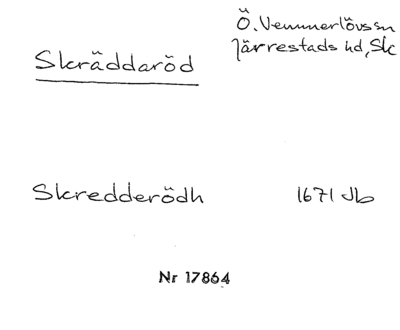 Skräddaröd
Ö. Vemmerlövs sn
Järrestads hd, Sk
Skredderödh 1671 Jb
Nr 17864